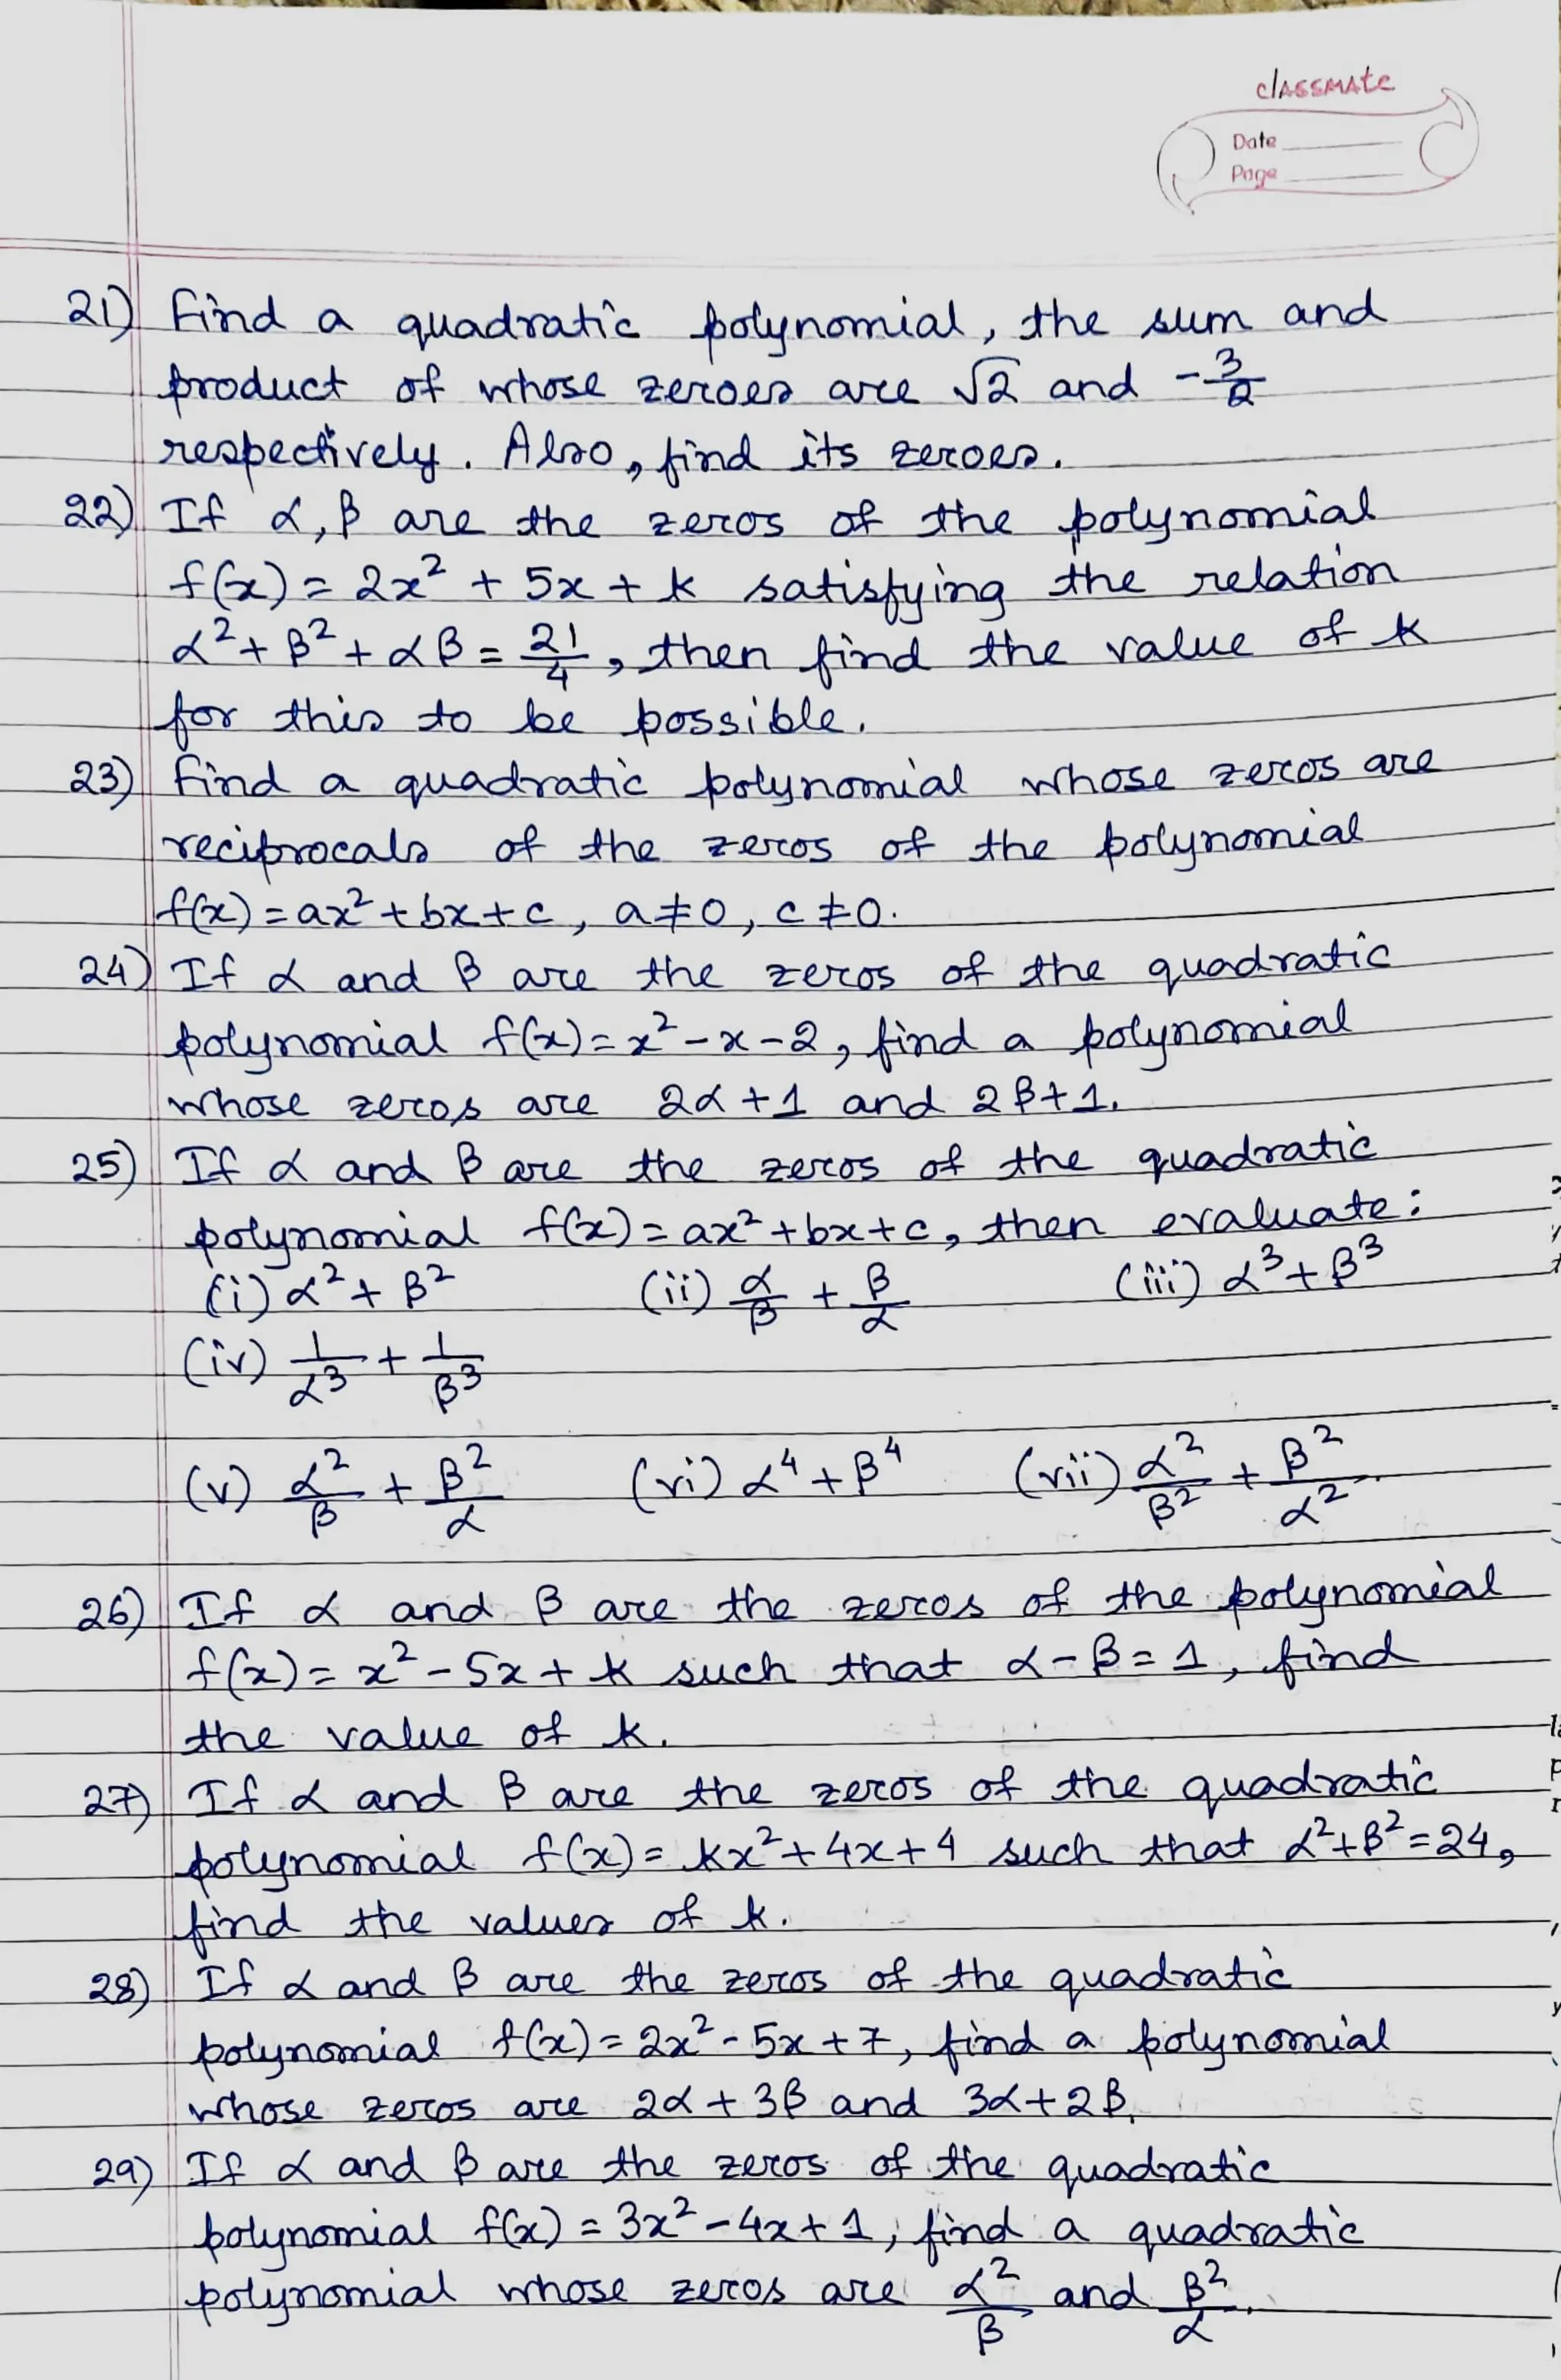 classmate
Date
Page
21) Find a quadratic polynomial, the sum and
product of whose zeroes are √2 and -3/2
respectively. Also, find its zeroes.
22) If α, β are the zeros of the polynomial
f(x) = 2x² + 5x + k satisfying the relation
α² + β² + αβ = 21/4, then find the value of k
for this to be possible.
23) Find a quadratic polynomial whose zeros are
reciprocals of the zeros of the polynomial
f(x) = ax² + bx + c, a ≠ 0, c ≠ 0.
24) If α and β are the zeros of the quadratic
polynomial f(x) = x² - x - 2, find a polynomial
whose zeros are 2α + 1 and 2β + 1.
25) If α and β are the zeros of the quadratic
polynomial f(x) = ax² + bx + c, then evaluate:
(i) α² + β² (ii) α/β + β/α (iii) α³ + β³
(iv) 1/α³ + 1/β³
(v) α²/β + β²/α (vi) α⁴ + β⁴ (vii) α²/β² + β²/α².
26) If α and β are the zeros of the polynomial
f(x) = x² - 5x + k such that α - β = 1, find
the value of k.
27) If α and β are the zeros of the quadratic
polynomial f(x) = kx² + 4x + 4 such that α² + β² = 24,
find the values of k.
28) If α and β are the zeros of the quadratic
polynomial f(x) = 2x² - 5x + 7, find a polynomial
whose zeros are 2α + 3β and 3α + 2β.
29) If α and β are the zeros of the quadratic
polynomial f(x) = 3x² - 4x + 1, find a quadratic
polynomial whose zeros are α²/β and β²/α.